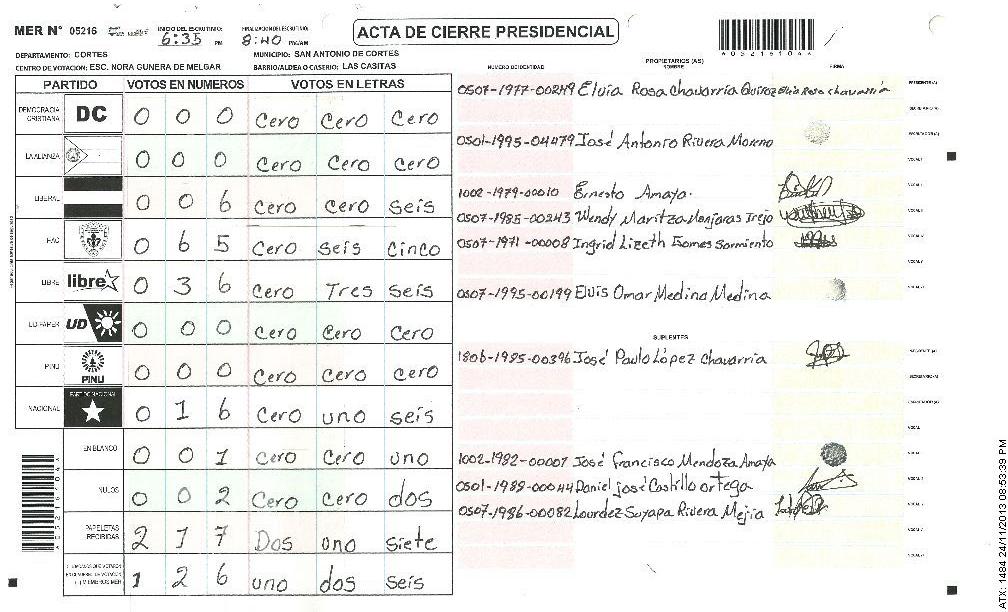 MER N° 05216 INICIO DEL ESCRUTINIO: 6:35 PM FINALIZACION DEL ESCRUTINIO: 8:40 PM/AM ACTA DE CIERRE PRESIDENCIAL
DEPARTAMENTO: CORTES MUNICIPIO: SAN ANTONIO DE CORTES
CENTRO DE VOTACION: ESC. NORA GUNERA DE MELGAR BARRIO/ALDEA O CASERIO: LAS CASITAS
NUMERO DE IDENTIDAD PROPIETARIOS (AS) NOMBRE FIRMA
PARTIDO VOTOS EN NUMEROS VOTOS EN LETRAS
DEMOCRACIA CRISTIANA DC 0 0 0 cero cero cero
LA ALIANZA 0 0 0 cero cero cero
LIBERAL 0 0 6 cero cero seis
PAC 0 6 5 cero seis cinco
LIBRE libre 0 3 6 cero Tres seis
UD FAPER UD 0 0 0 cero cero cero
PINU PINU 0 0 0 cero cero cero
NACIONAL PARTIDO NACIONAL 0 1 6 cero uno seis
EN BLANCO 0 0 1 cero cero uno
NULOS 0 0 2 cero cero dos
PAPELETAS RECIBIDAS 2 1 7 Dos uno siete
1 2 6 uno dos seis
0507-1977-00249 Elvia Rosa Chavarria Quiroz Elvia Rosa chavarria
0501-1995-04479 José Antonio Rivera Moreno
1002-1979-00010 Ernesto Amaya.
0507-1985-00243 Wendy Maritza Monjaras Trejo
0507-1971-00008 Ingrid Lizeth Gomes Sarmiento
0507-1995-00199 Elvis Omar Medina Medina
SUPLENTES
1806-1985-00396 José Paulo López Chavarria
1002-1982-00007 José Francisco Mendoza Amaya
0501-1988-00044 Daniel José Castillo ortega
0507-1986-00082 Lourdez Suyapa Rivera Mejia
ATX: 1484 24/11/2013 08:53:39 PM